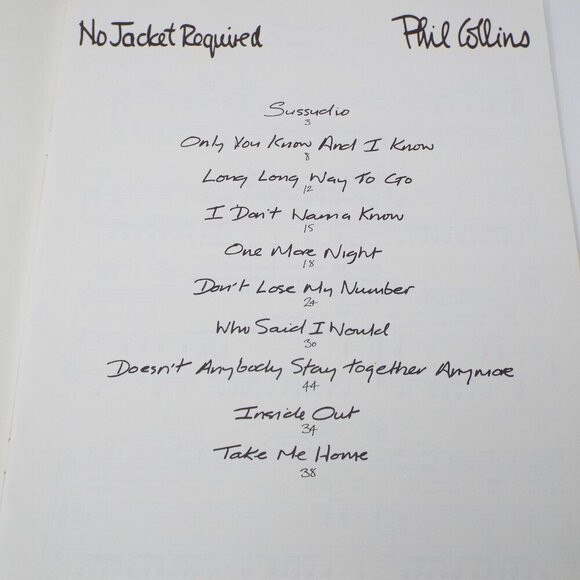 No Jacket Required Phil Collins
Sussudio
3
Only You Know And I Know
8
Long Long Way To Go
12
I Don't Wanna Know
15
One More Night
18
Don't Lose My Number
24
Who Said I Would
30
Doesn't Anybody Stay Together Anymore
44
Inside Out
34
Take Me Home
38